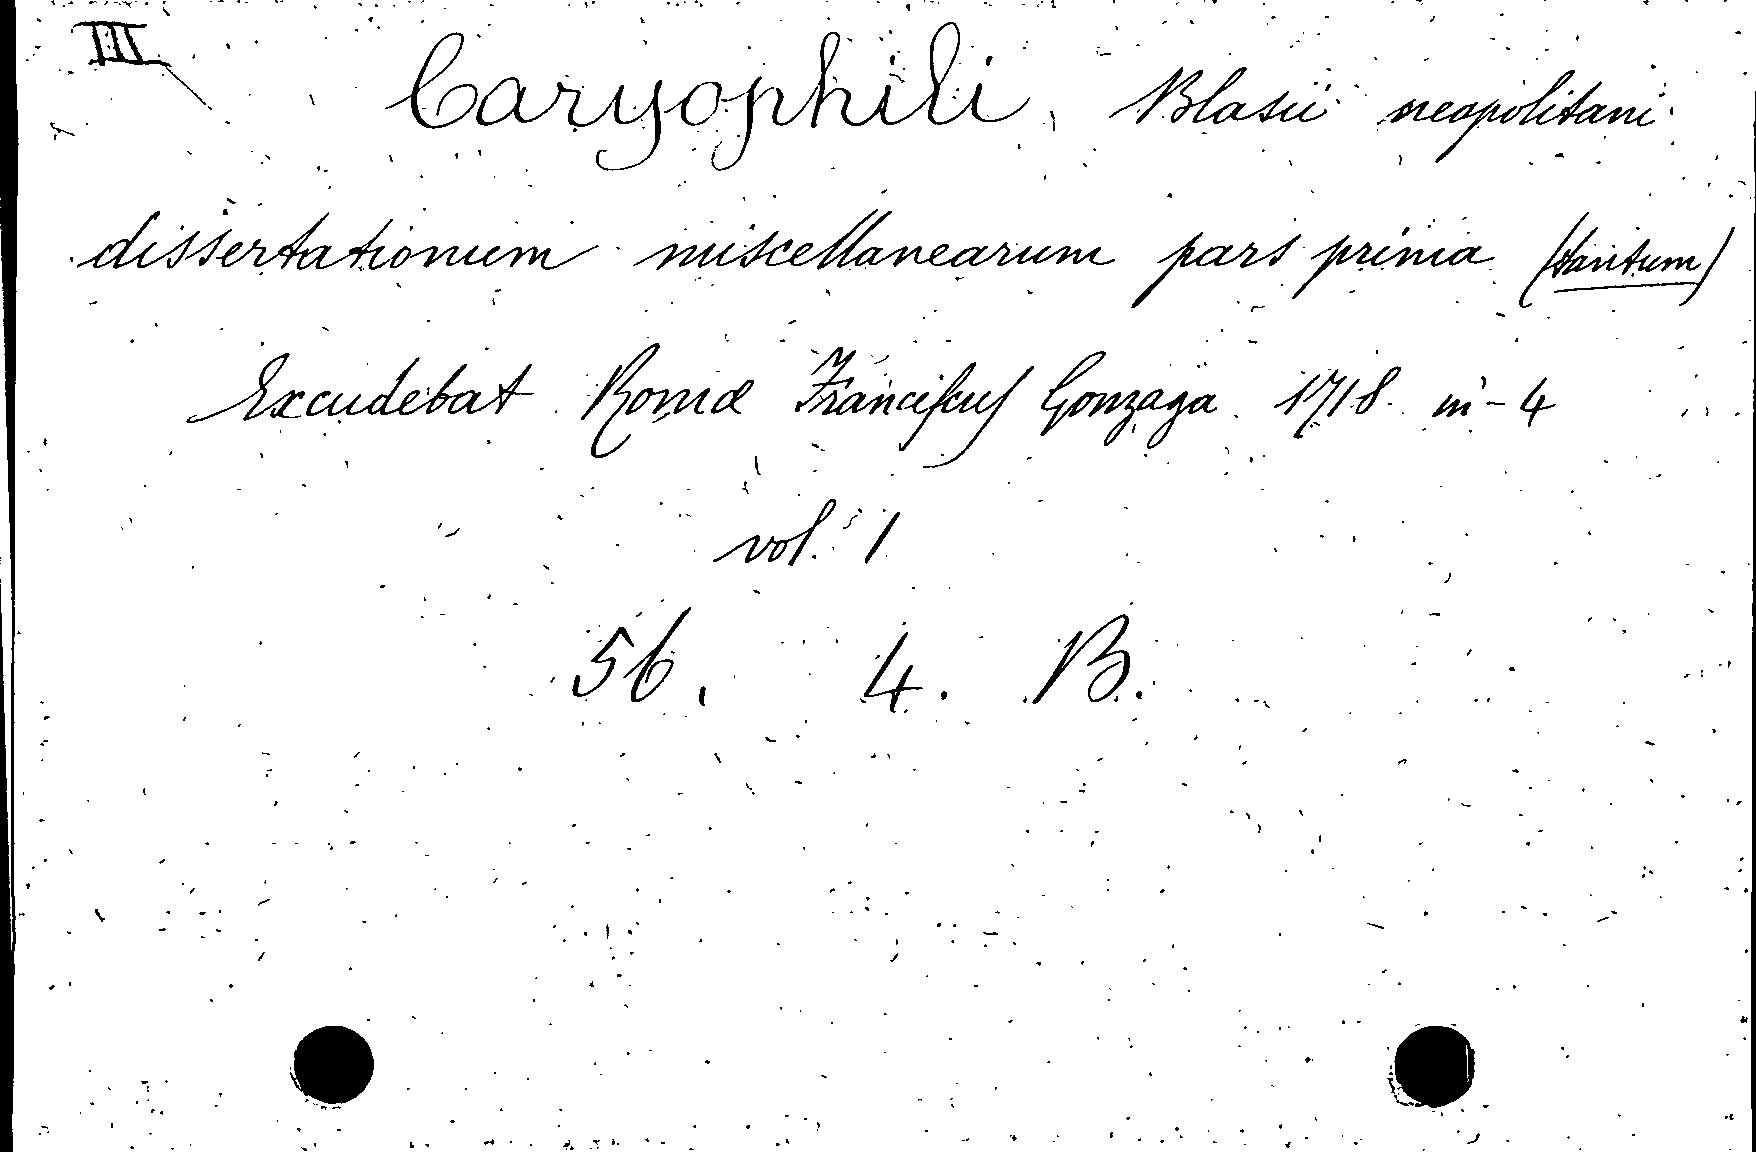 III
Caryophili, Blasii neapolitani
dissertationum miscellanearum pars prima (tantum)
Excudebat Romæ Franciſcuſ Gonzaga 1718 in-4
vol. 1
56. 4. B.